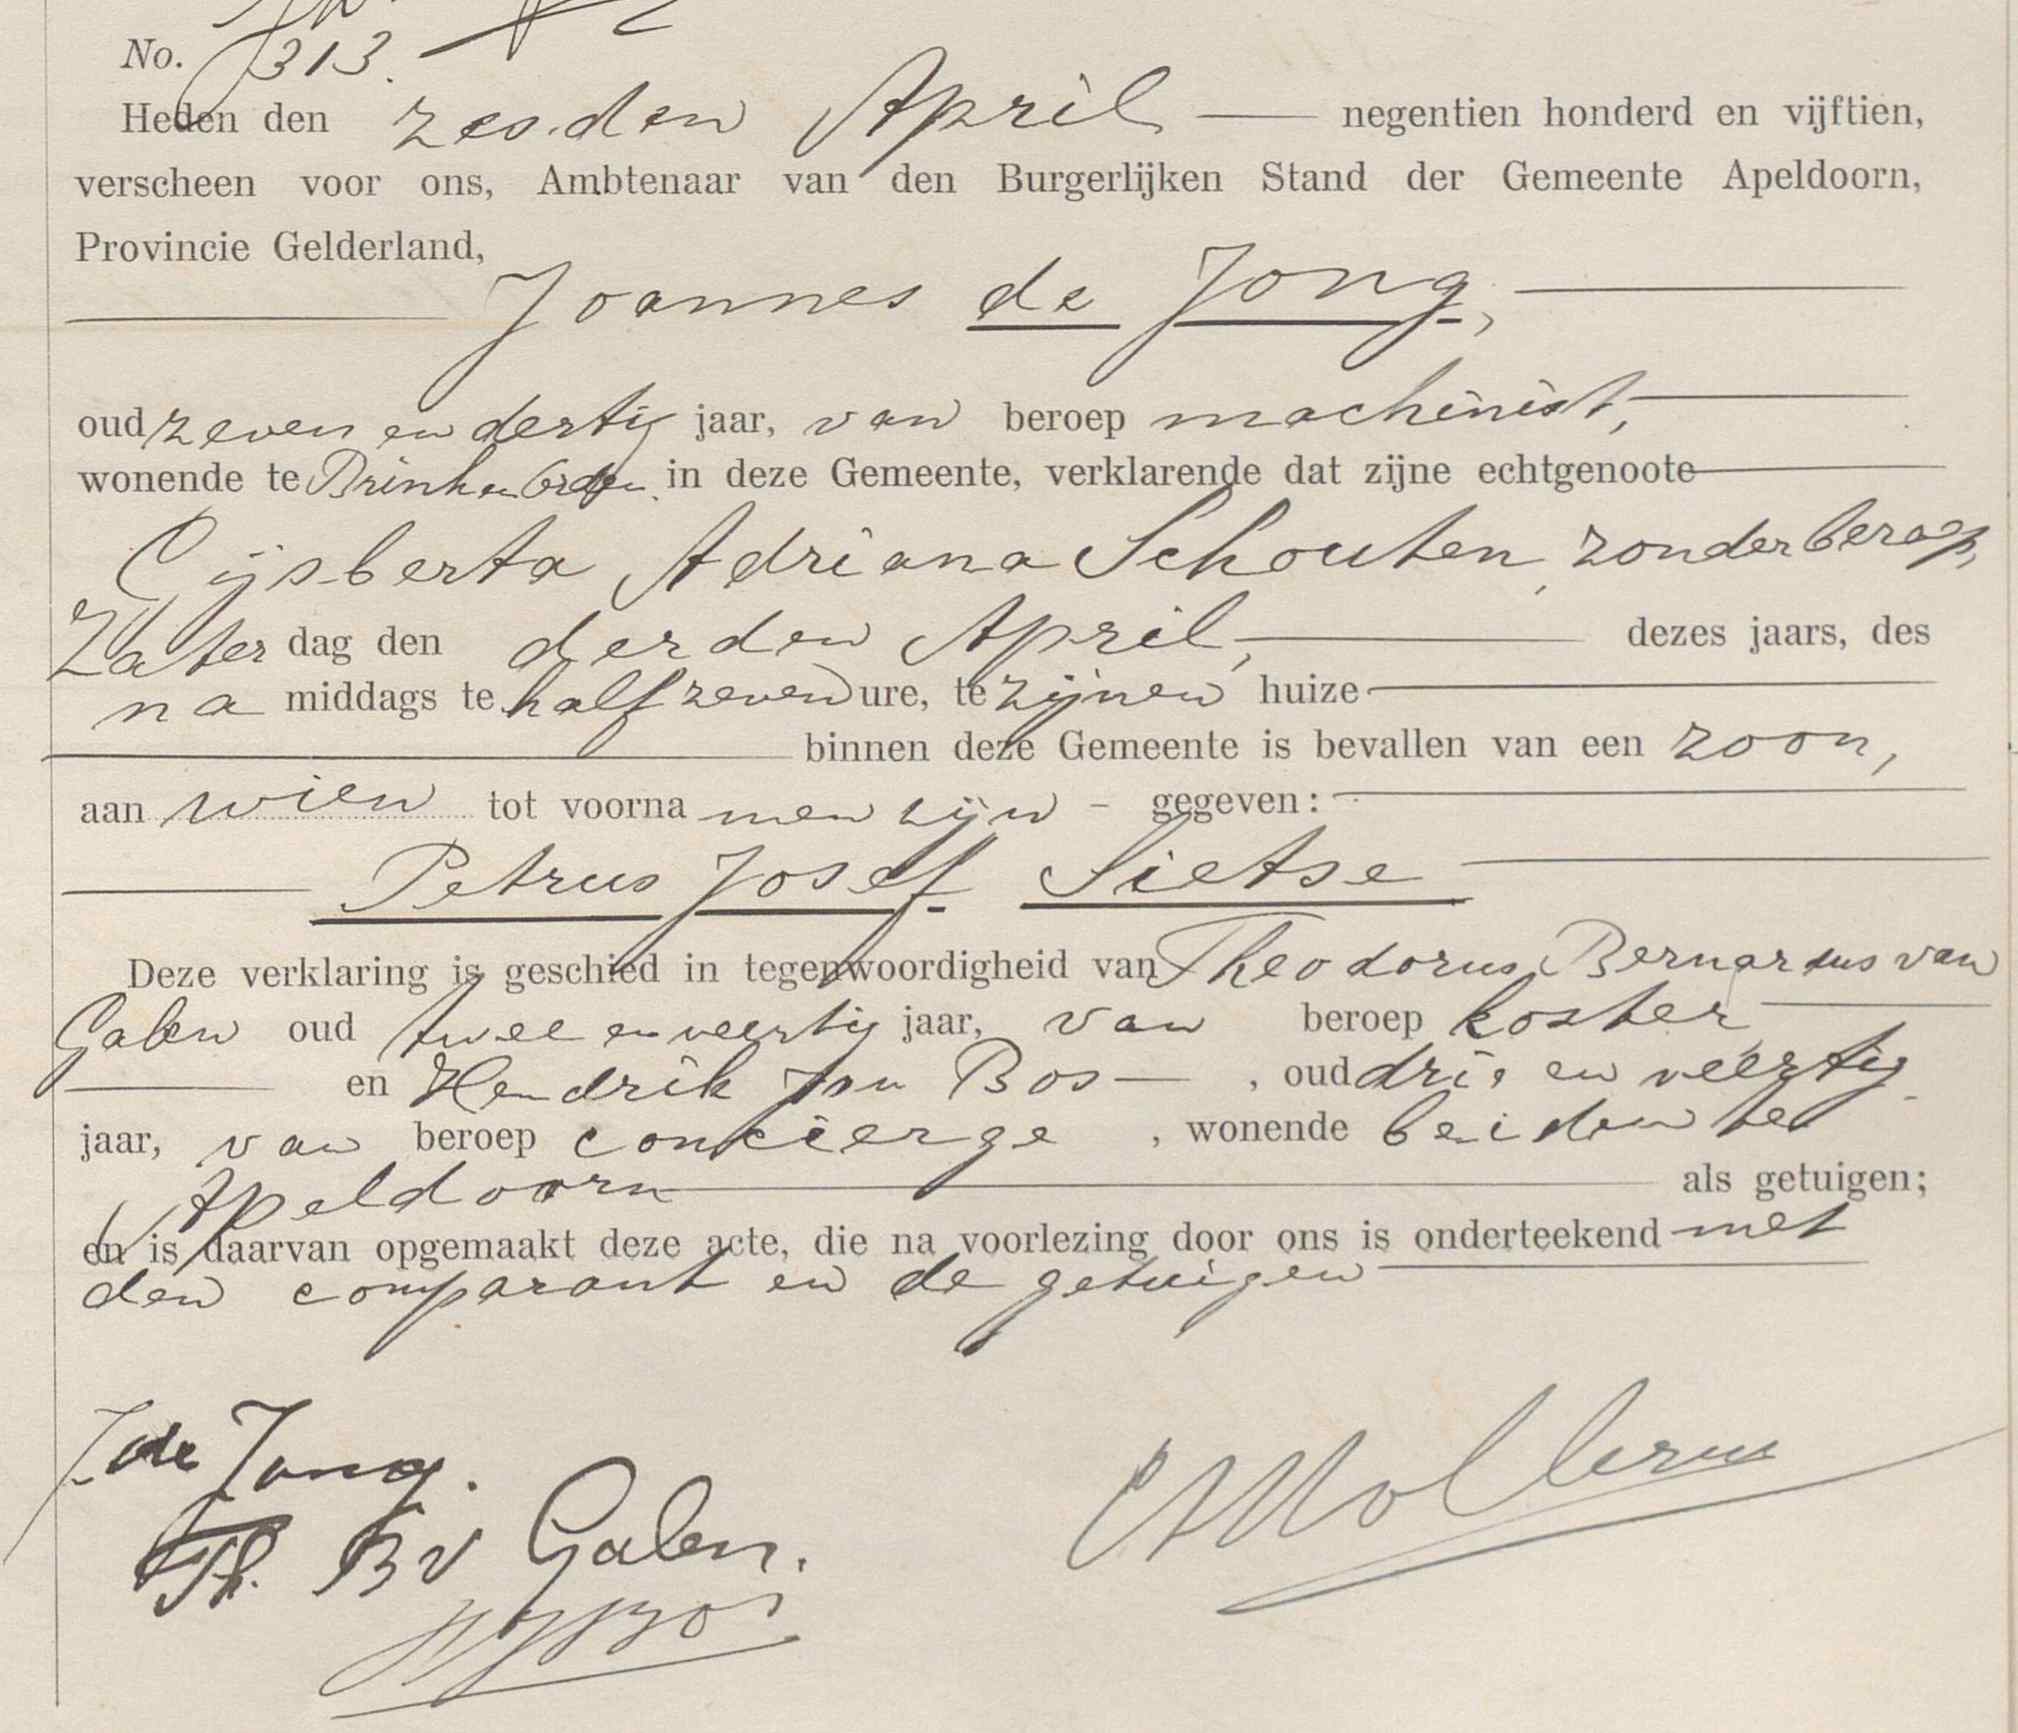 No. 313.
Heden den zesden April negentien honderd en vijftien,
verscheen voor ons, Ambtenaar van den Burgerlijken Stand der Gemeente Apeldoorn,
Provincie Gelderland,
Joannes de Jong,
oud zeven en dertig jaar, van beroep machinist,
wonende te in deze Gemeente, verklarende dat zijne echtgenoote
Gijsberta Adriana Schouten, zonder beroep,
Zaterdag den derden April, dezes jaars, des
namiddags te half zeven ure, te zijnen huize
binnen deze Gemeente is bevallen van een zoon,
aan wien tot voornamen zijn - gegeven:
Petrus Josef Sietse
Deze verklaring is geschied in tegenwoordigheid van Theodorus Bernardus van
Galen oud twee en veertig jaar, van beroep koster
en Hendrik Jan Bos, oud drie en veertig
jaar, van beroep concierge, wonende beiden te
Apeldoorn als getuigen;
en is daarvan opgemaakt deze acte, die na voorlezing door ons is onderteekend met
den comparant en de getuigen
J de Jong.
Th. B v Galen.
HJ Bos